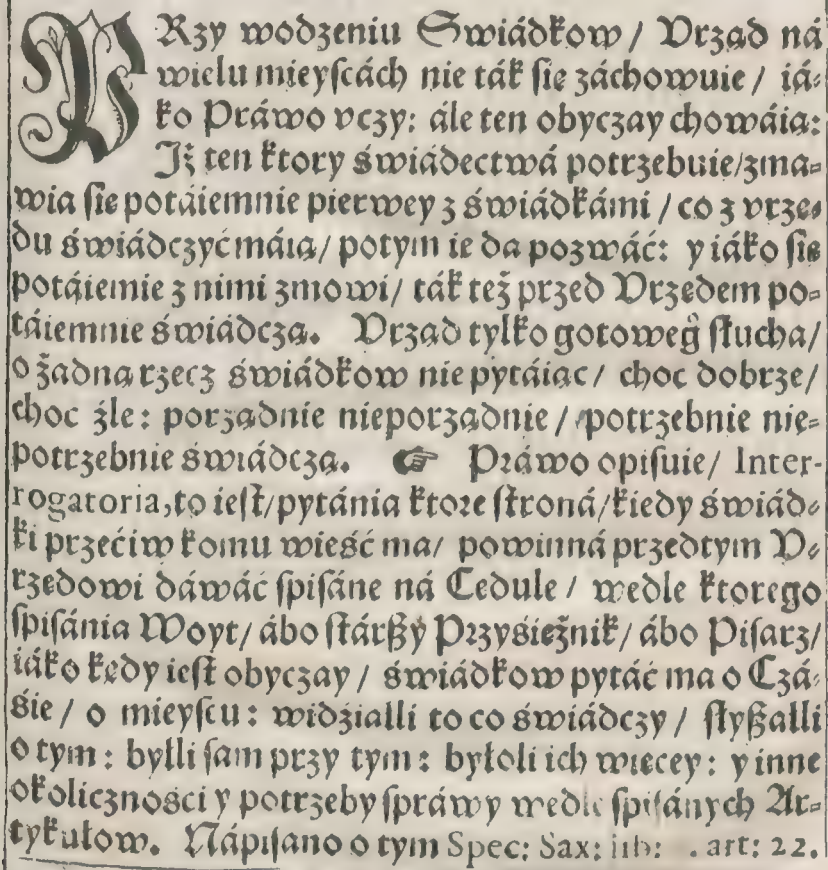 PRzy wodzeniu Swiádkow / Vrząd ná
wielu mieyſcách nie ták ſie záchowuie / iá-
ko Práwo vczy: ále ten obyczay chowáią:
Jż ten ktory świádectwá potrzebuie/zma-
wia ſie potáiemnie pierwey z świádkámi / co z vrzę-
du świádczyć máią/ potym ie da pozwáć: y iáko ſie
potáiemie z nimi zmowi/ ták też przed Vrzędem po-
táiemnie świádczą. Vrząd tylko gotoweg̃ ſłucha/
o żadną rzecz świádkow nie pytáiąc/ choc dobrze/
choc źle: porządnie nieporządnie / potrzebnie nie-
potrzebnie świádczą. ☞ Práwo opiſuie/ Inter-
rogatoria, to ieſt/pytánia ktore ſtroná/kiedy świád-
ki przećiw komu wieść ma/ powinná przedtym V-
rzędowi dáwáć ſpiſáne ná Cedule / wedle ktorego
ſpiſánia Woyt/ ábo ſtárßy Przyśiężnik/ ábo Piſarz/
iáko kędy ieſt obyczay / świádkow pytáć ma o Czá-
śie / o mieyſcu: widźialli to co świádczy / ſłyßalli
o tym: byłli ſam przy tym: byłoli ich więcey: y inne
okolicznośći y potrzeby ſpráwy wedle ſpiſánych Ar-
tykułow. Nápiſano o tym Spec: Sax: lib: . art: 22.